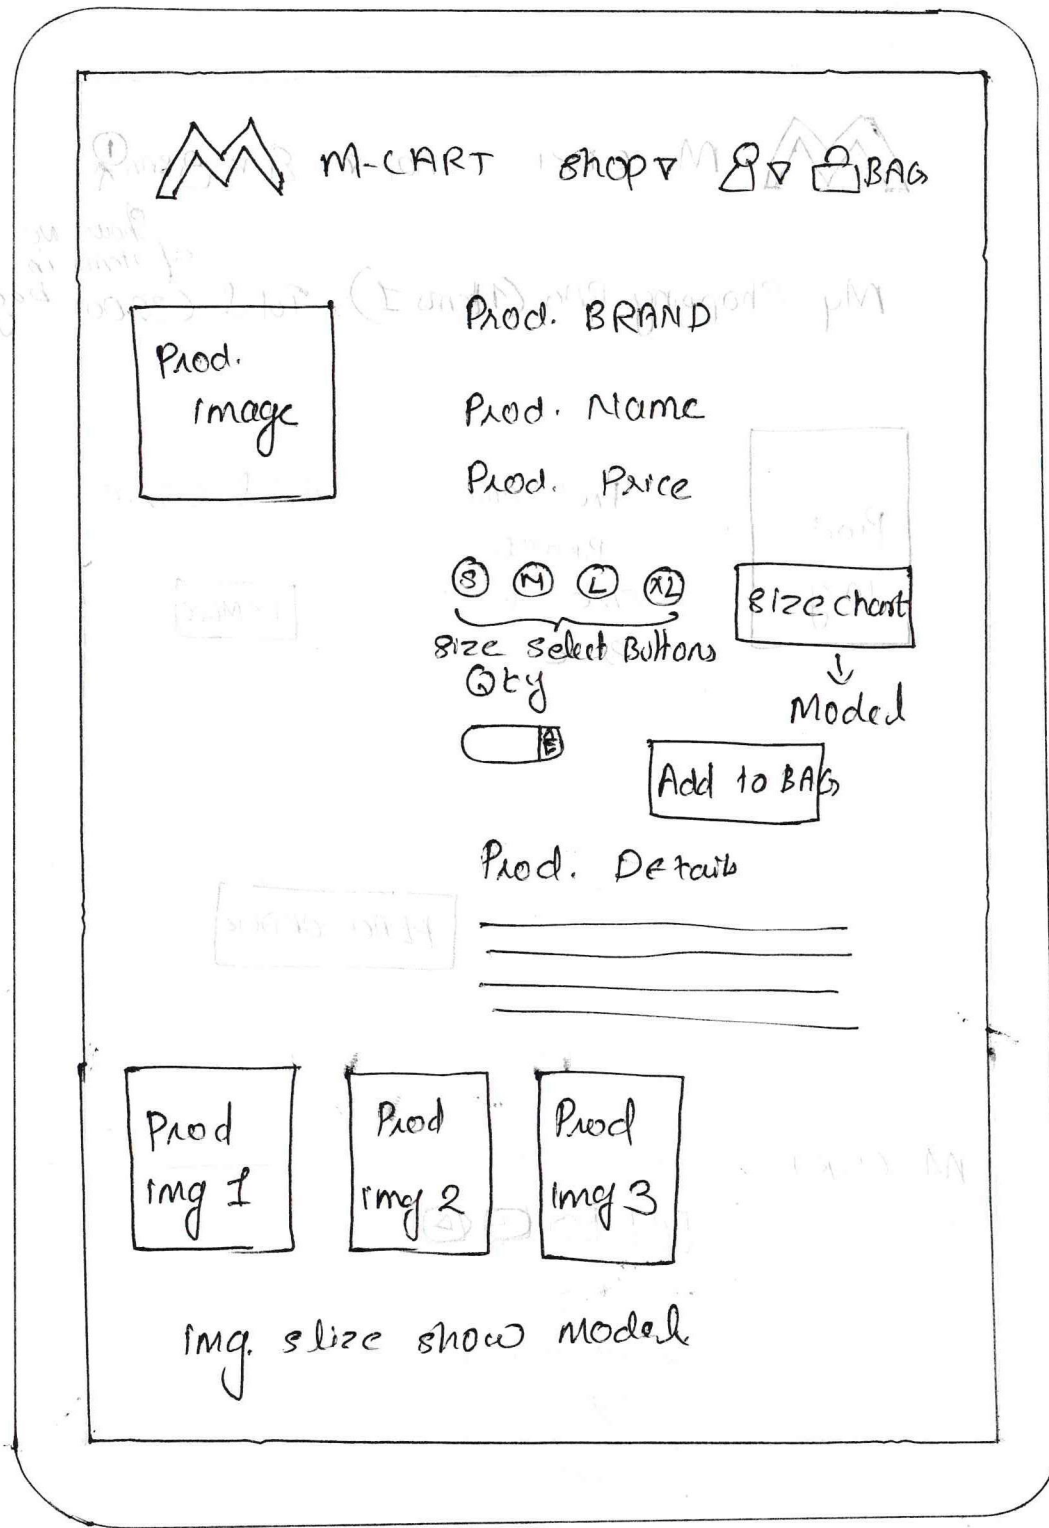 M-CART shop BAG
Prod.
image
Prod. BRAND
Prod. Name
Prod. Price
S M L XL
size chart
size select Buttons
Model
Qty
Add to BAG
Prod. Details
Prod
img 1
Prod
img 2
Prod
img 3
img. slize show model